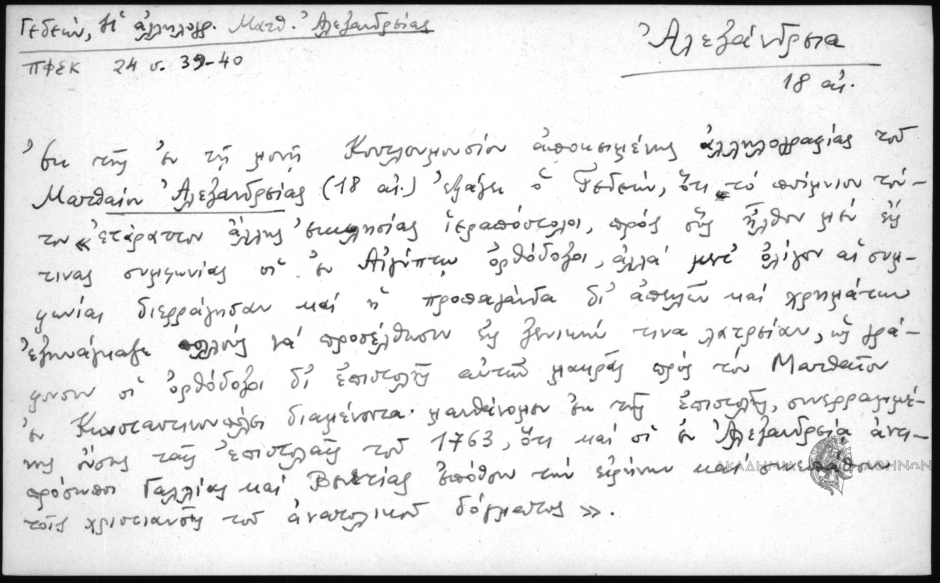 Γεδεών, ἡ ἀλληλογρ. Ματθ. Ἀλεξανδρείας
ΠΦΣΚ 24 σ. 39-40
Ἀλεξάνδρεια
18 αἰ.
Ἐκ τῆς ἐν τῇ μονῇ Κουτλουμουσίου ἀποκειμένης ἀλληλογραφίας τοῦ
Ματθαίου Ἀλεξανδρείας (18 αἰ.) ἐξάγει ὁ Γεδεών, ὅτι τὸ ποίμνιον τού-
του «ἐτάραττον ἄλλης ἐκκλησίας ἱεραπόστολοι, πρὸς οὓς ἦλθον μὲν εἰς
τινας συμφωνίας οἱ ἐν Αἰγύπτῳ ὀρθόδοξοι, ἀλλὰ μετ' ὀλίγον αἱ συμ-
φωνίαι διερράγησαν καὶ ἡ προπαγάνδα δι' ἀπειλῶν καὶ χρημάτων
ἐξηνάγκαζε πολλοὺς νὰ προσέλθωσιν εἰς ξενικήν τινα λατρείαν, ὡς γρά-
φουσιν οἱ ὀρθόδοξοι δι' ἐπιστολῆς αὐτῶν μακρᾶς πρὸς τὸν Ματθαῖον
ἐν Κωνσταντινουπόλει διαμένοντα· μανθάνομεν ἐκ τῆς ἐπιστολῆς, συνερραμμέ-
νης οὔσης ταῖς ἐπιστολαῖς τοῦ 1763, ὅτι καὶ οἱ ἐν Ἀλεξανδρείᾳ ἀντι-
πρόσωποι Γαλλίας καὶ Βενετίας ἐπόθουν τὴν εἰρήνην καὶ συνεπάθουν
τοῖς χριστιανοῖς τοῦ ἀνατολικοῦ δόγματος».
ΑΚΑΔΗΜΙΑ ΑΘΗΝΩΝ